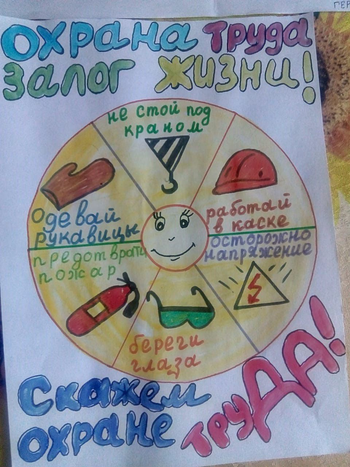 ОХРАНА ТРУДА
ЗАЛОГ ЖИЗНИ!
не стой под
краном
работай
в каске
осторожно
напряжение
береги
глаза
предотврати
пожар
Одевай
рукавицы
Скажем
охране
труДА!